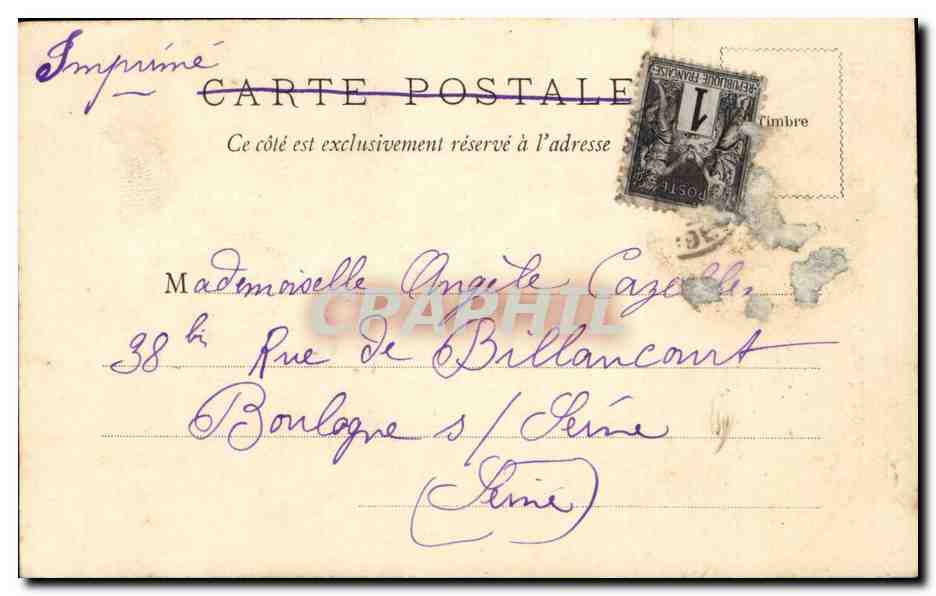 Imprimé
CARTE POSTALE
Ce côté est exclusivement réservé à l'adresse
REPUBLIQUE FRANÇAISE
1
POSTE
Timbre
Mademoiselle Angèle
CPAPHIL
38 bis Rue de Billancourt
Boulogne s/ Seine
(Seine)